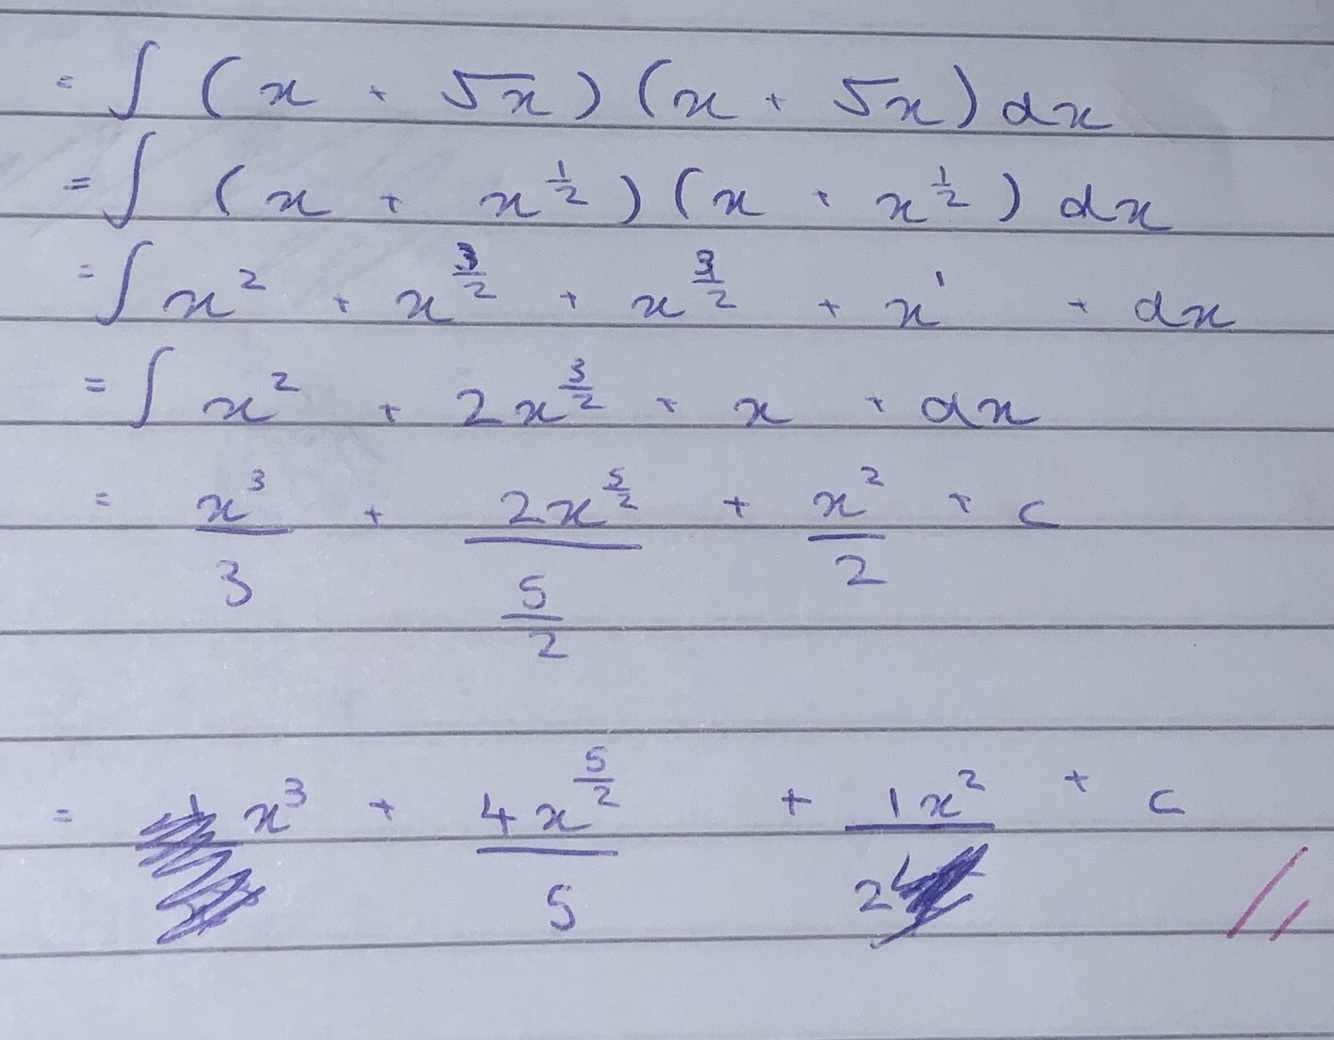 = ∫ (x + √x) (x + √x) dx
= ∫ (x + x^{1/2}) (x + x^{1/2}) dx
= ∫ x^2 + x^{3/2} + x^{3/2} + x^1 + dx
= ∫ x^2 + 2x^{3/2} + x + dx
= x^3/3 + 2x^{5/2}/(5/2) + x^2/2 + c
= x^3 + 4x^{5/2}/5 + 1x^2/2 + c